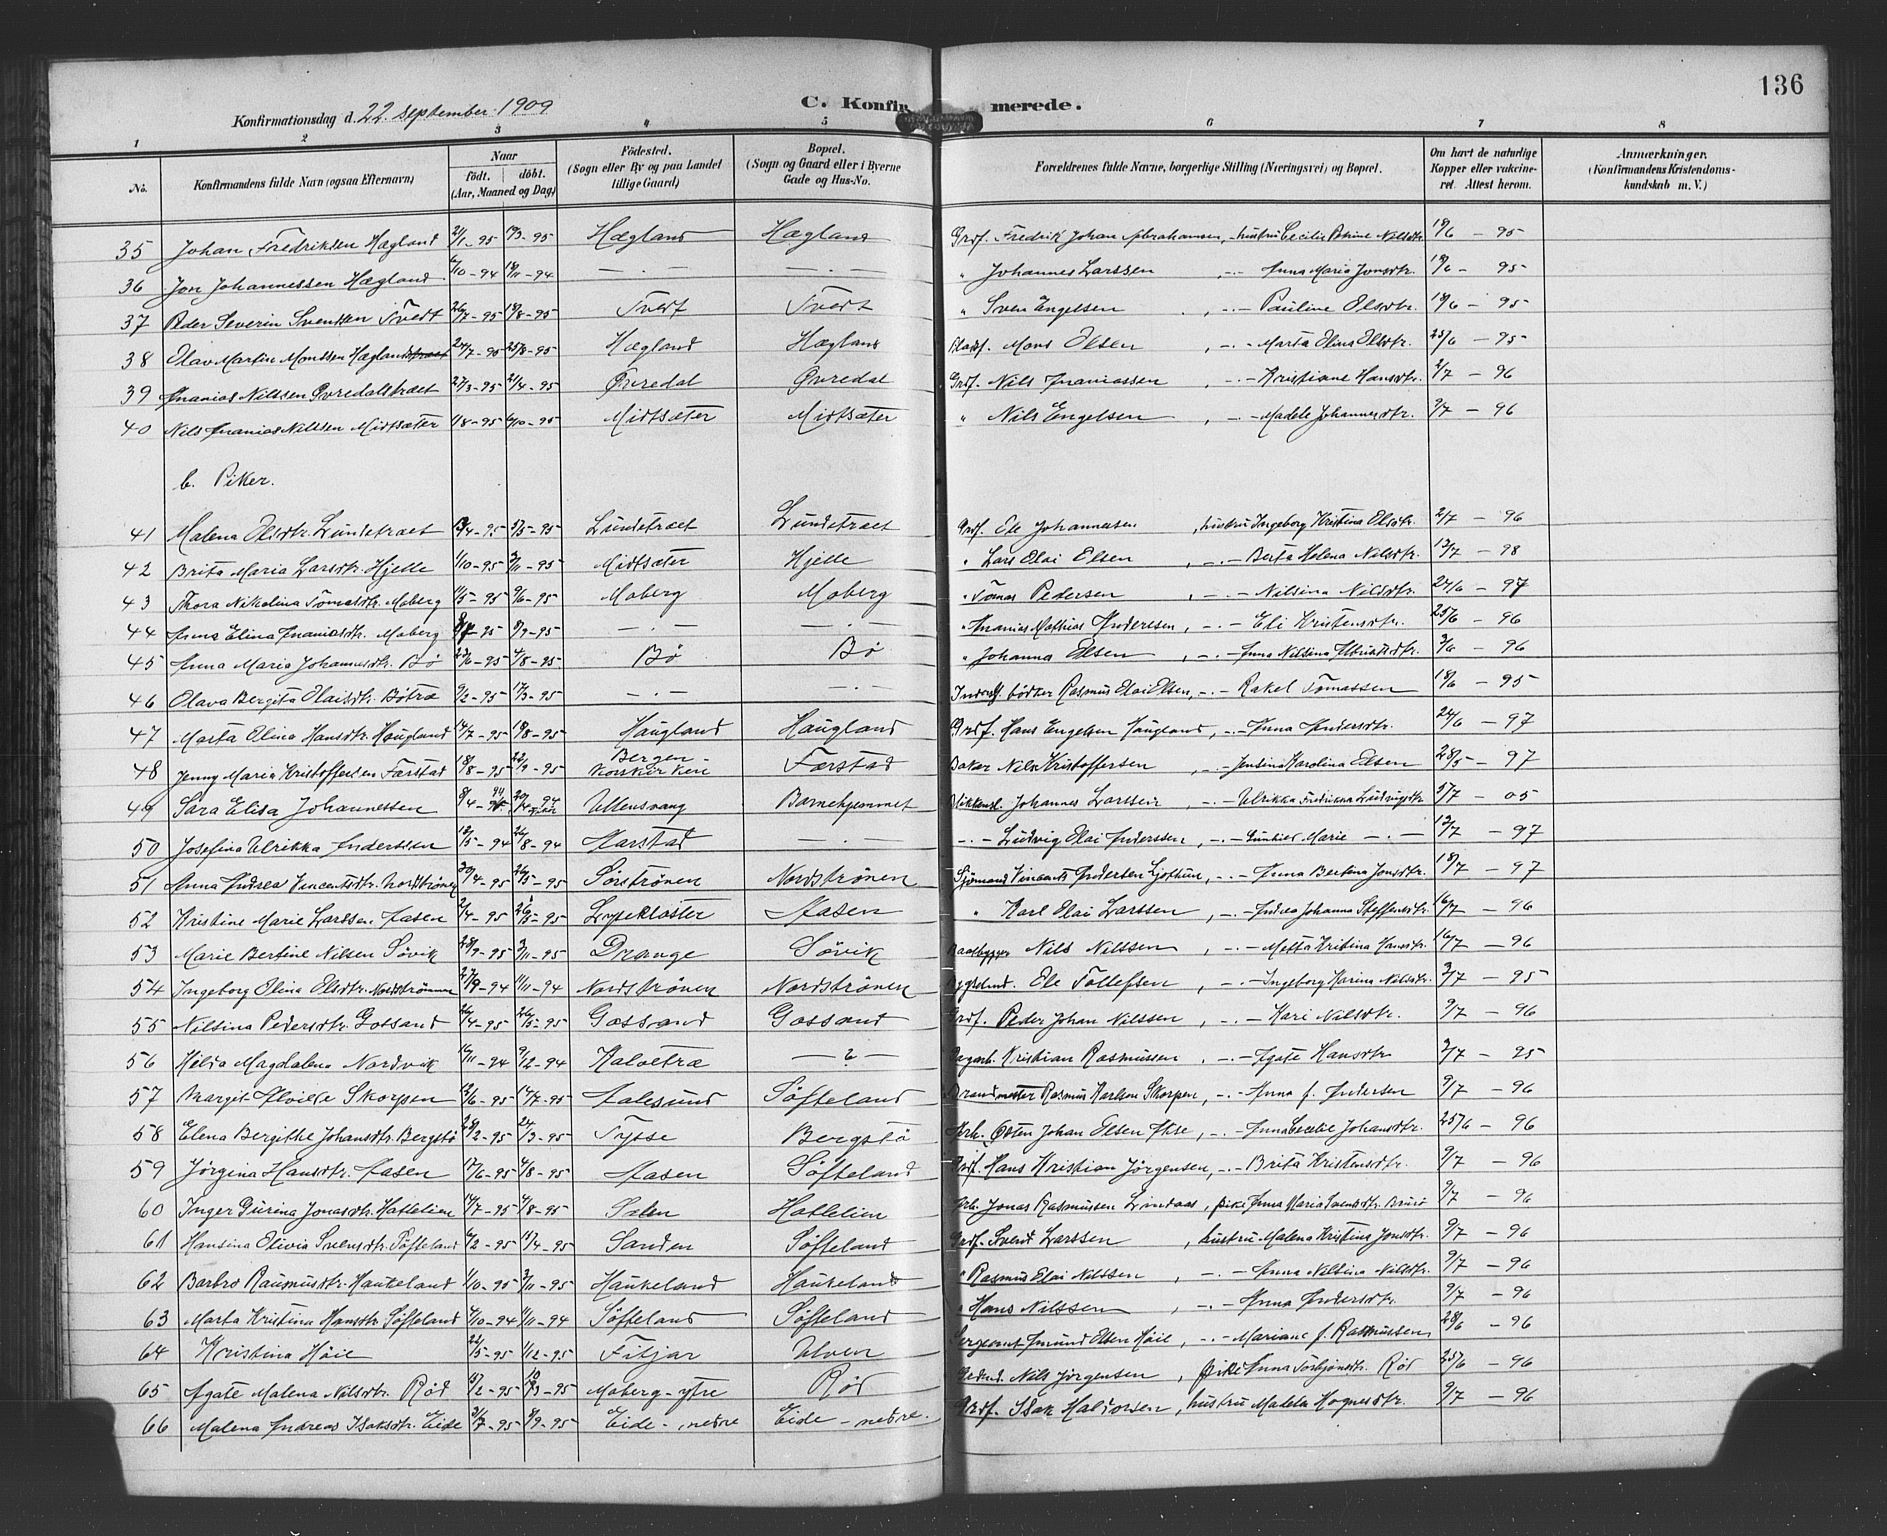 136
Konfirmationsdag d. 22. september 1909
C. Konfirmerede.
1 2 3 4 5 6 7 8
No. Konfirmandens fulde Navn (ogsaa Efternavn) Naar født. døbt. (Aar, Maaned og Dag) Fødested. (Sogn eller By og paa Landet tillige Gaard) Bopæl. (Sogn og Gaard eller i Byerne Gade og Hus-No. Forældrenes fulde Navne, borgerlige Stilling (Næringsvei) og Bopæl. Om havt de naturlige Kopper eller vakcineret. Attest herom. Anmærkninger. (Konfirmandens Kristendomskundskab m. V.)
35 Johan Fredriksen Hægland 21/1-95 Hægland Hægland Grdf. Fredrik Johan Abrahamsen, -hustru Cecilie Nilsdtr. 18/6 - 95
36 Jon Johannessen Hægland -94 -94 — . — — . — " Johannes Larssen -.- Anna Maria Jonsdtr. 18/6 - 95
37 Peder Severin Svendsen Tvedt 26/7-95 18/8-95 Tvedt Tvedt " Sven Engelsen , -.- Pauline Olsdtr. 18/6 - 95
38 Olav Martin Monssen Hægland 24/7-95 25/8-95 Hægland Hægland Mons Olsen , -.- Marta Olina Olsdtr. 25/6 - 95
39 Ananias Nilssen Øvredalstræet 27/3-95 21/4-95 Øvredal Øvredal Grdf. Nils Ananiassen , -.- Kristiane Hansdtr. 2/7 - 96
40 Nils Ananias Nilssen Midtsæter 1/8-95 6/10-95 Midtsæter Midtsæter " Nils Engelsen , -.- Madele Johannesdtr. 9/7 - 96
b. Piker.
41 Malena Olsdtr. Lundetræet -95 5/5-95 Lundetræet Lundetræet Grdf. Ole Johannessen , hustru Ingeborg Kristina Olsdtr. 2/7 - 96
42 Brita Maria Larsdtr. Hjelle 1/10-95 3/11-95 Midtsæter Hjelle " Lars Olai Olsen , -.- Berta Helena Nilsdtr. 12/7 - 98
43 Thora Nikolina Tomasdtr. Moberg 11/5-95 9/6-95 Moberg Moberg " Tomas Pedersen , -.- Nilsina Nilsdtr. 24/6 - 97
44 Anna Elina Ananiasdtr. Moberg -95 8/9-95 — . — — . — " Ananias Mathias Andersen, -.- Eli Kristensdtr. 25/6 - 96
45 Anna Maria Johannesdtr. Bø 23/6-95 4/8-95 Bø Bø " Johanna Olsen , -.- Anna Nilsina 3/6 - 96
46 Olava Bergita Olaisdtr. Bøtræ 9/2-95 17/3-95 — . — — . — bødker Rasmus Olai Olsen, -.- Rakel Tomassen 18/6 - 95
47 Marta Olina Hansdtr. Haugland 14/7-95 18/8-95 Haugland Haugland Grdf. Hans Engelsen Haugland, -.- Anna Andersdtr. 24/6 - 97
48 Jenny Maria Kristoffersen Færstad 18/8-95 22/9-95 Bergen - Korskirken Færstad Baker Nils Kristoffersen , -.- Jensina Karolina Olsen 28/5 - 97
49 Sara Elisa Johannessen 8/4-94 Ullensvang Barnehjemmet Johannes Larssen , -.- Ulrikka Fredrikka Ludvigsdtr 3/7 - 05
50 Josefina Ulrikka Anderssen 12/5-94 26/8-94 Harstad — . — -.- Ludvig Olai Anderssen, -.- Marie -.- 12/7 - 97
51 Anna Andrea Vincentsdtr. Nordstrønen 20/4-95 26/5-95 Sørstrønen Nordstrønen Sjømand Vincents Andersen , -.- Anna Bertina Jonsdtr. 18/7 - 97
52 Kristine Marie Larssen Aasen 2/4-95 26/5-95 Lysekloster Aasen " Karl Olai Larssen , -.- Andrea Johanna Steffensdtr. 16/7 - 96
53 Marie Bertine Nilsen Søvik 28/9-95 3/11-95 Drange Søvik Baadbygger Nils Nilssen , -.- Metta Kristina Hansdtr. 16/7 - 96
54 Ingeborg Olina Olsdtr. Nordstrønen 27/9-94 11/11-94 Nordstrønen Nordstrønen Ole Tollefsen , -.- Ingeborg Marina Nilsdtr. 2/7 - 95
55 Nilsina Pedersdtr. Gossand 26/4-95 26/5-95 Gossand Gossand Grdf. Peder Johan Nilssen , -.- Kari Nilsdtr. 9/7 - 96
56 Helda Magdalena Nordvik 16/11-94 9/12-94 Kalvetræ — ? — Dagarb. Kristian Rasmussen , -.- Agate Hansdtr 2/7 - 95
57 Margit Alvilde Skorpen 12/6-95 14/7-95 Aalesund Søfteland Brandmester Rasmus Karlsen Skorpen, -.- Anna f. Andersen 9/7 - 96
58 Elena Bergithe Johansdtr. Bergstø 28/2-95 24/3-95 Tysse Bergstø Arb. Østen Johan Olsen Akse, -.- Anna Cecilie Johansdtr. 25/6 - 96
59 Jørgina Hansdtr. Aasen 17/6-95 4/8-95 Aasen Søfteland Grdf. Hans Kristian Jørgensen, -.- Brita Kristensdtr. 9/7 - 96
60 Inger Gurina Jonasdtr. Hatlelien 14/7-95 4/8-95 Salen Hatlelien Arb. Jonas Rasmussen Lindaas, pike Anna Maria Svendsdtr. 9/7 - 96
61 Hansina Olivia Svensdtr. Søfteland 6/2-95 15/4-95 Sanden Søfteland Grdf. Svend Larssen , hustru Malena Kristina Jonsdtr. 9/7 - 96
62 Barbro Rasmusdtr. Haukeland 1/10-95 3/11-95 Haukeland Haukeland " Rasmus Olai Nilssen , -.- Anna Nilsina Nilsdtr. 9/7 - 96
63 Marta Kristina Hansdtr. Søfteland 4/10-94 11/11-94 Søfteland Søfteland " Hans Nilssen , -.- Anna Andersdtr. 9/7 - 96
64 Kristina Høie 22/5-95 1/12-95 Fitjar Ulven Sergeant Amund Olsen Høie , -.- Mariane f. Rasmussen 28/6 - 96
65 Agate Malena Nilsdtr. Rød 15/2-95 10/3-95 Moberg - ytre Rød Nils Jørgensen , pike Anna Torbjønsdtr. Rød 25/6 - 96
66 Malena Andrea Isaksdtr. Eide 31/7-95 8/9-95 Eide - nedre Eide - nedre. Grdf. Isak Haldorsen , hustru Madela Mognesdtr. 9/7 - 96